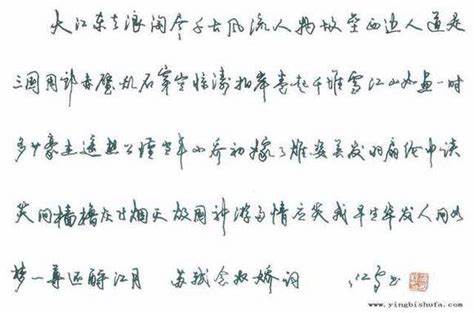 大江东去浪淘尽千古风流人物故垒西边人道是
三国周郎赤壁乱石穿空惊涛拍岸卷起千堆雪江山如画一时
多少豪杰遥想公瑾当年小乔初嫁了雄姿英发羽扇纶巾谈
笑间樯橹灰飞烟灭故国神游多情应笑我早生华发人间如
梦一尊还酹江月 苏轼念奴娇词 江雪书
www.yingbishufa.com